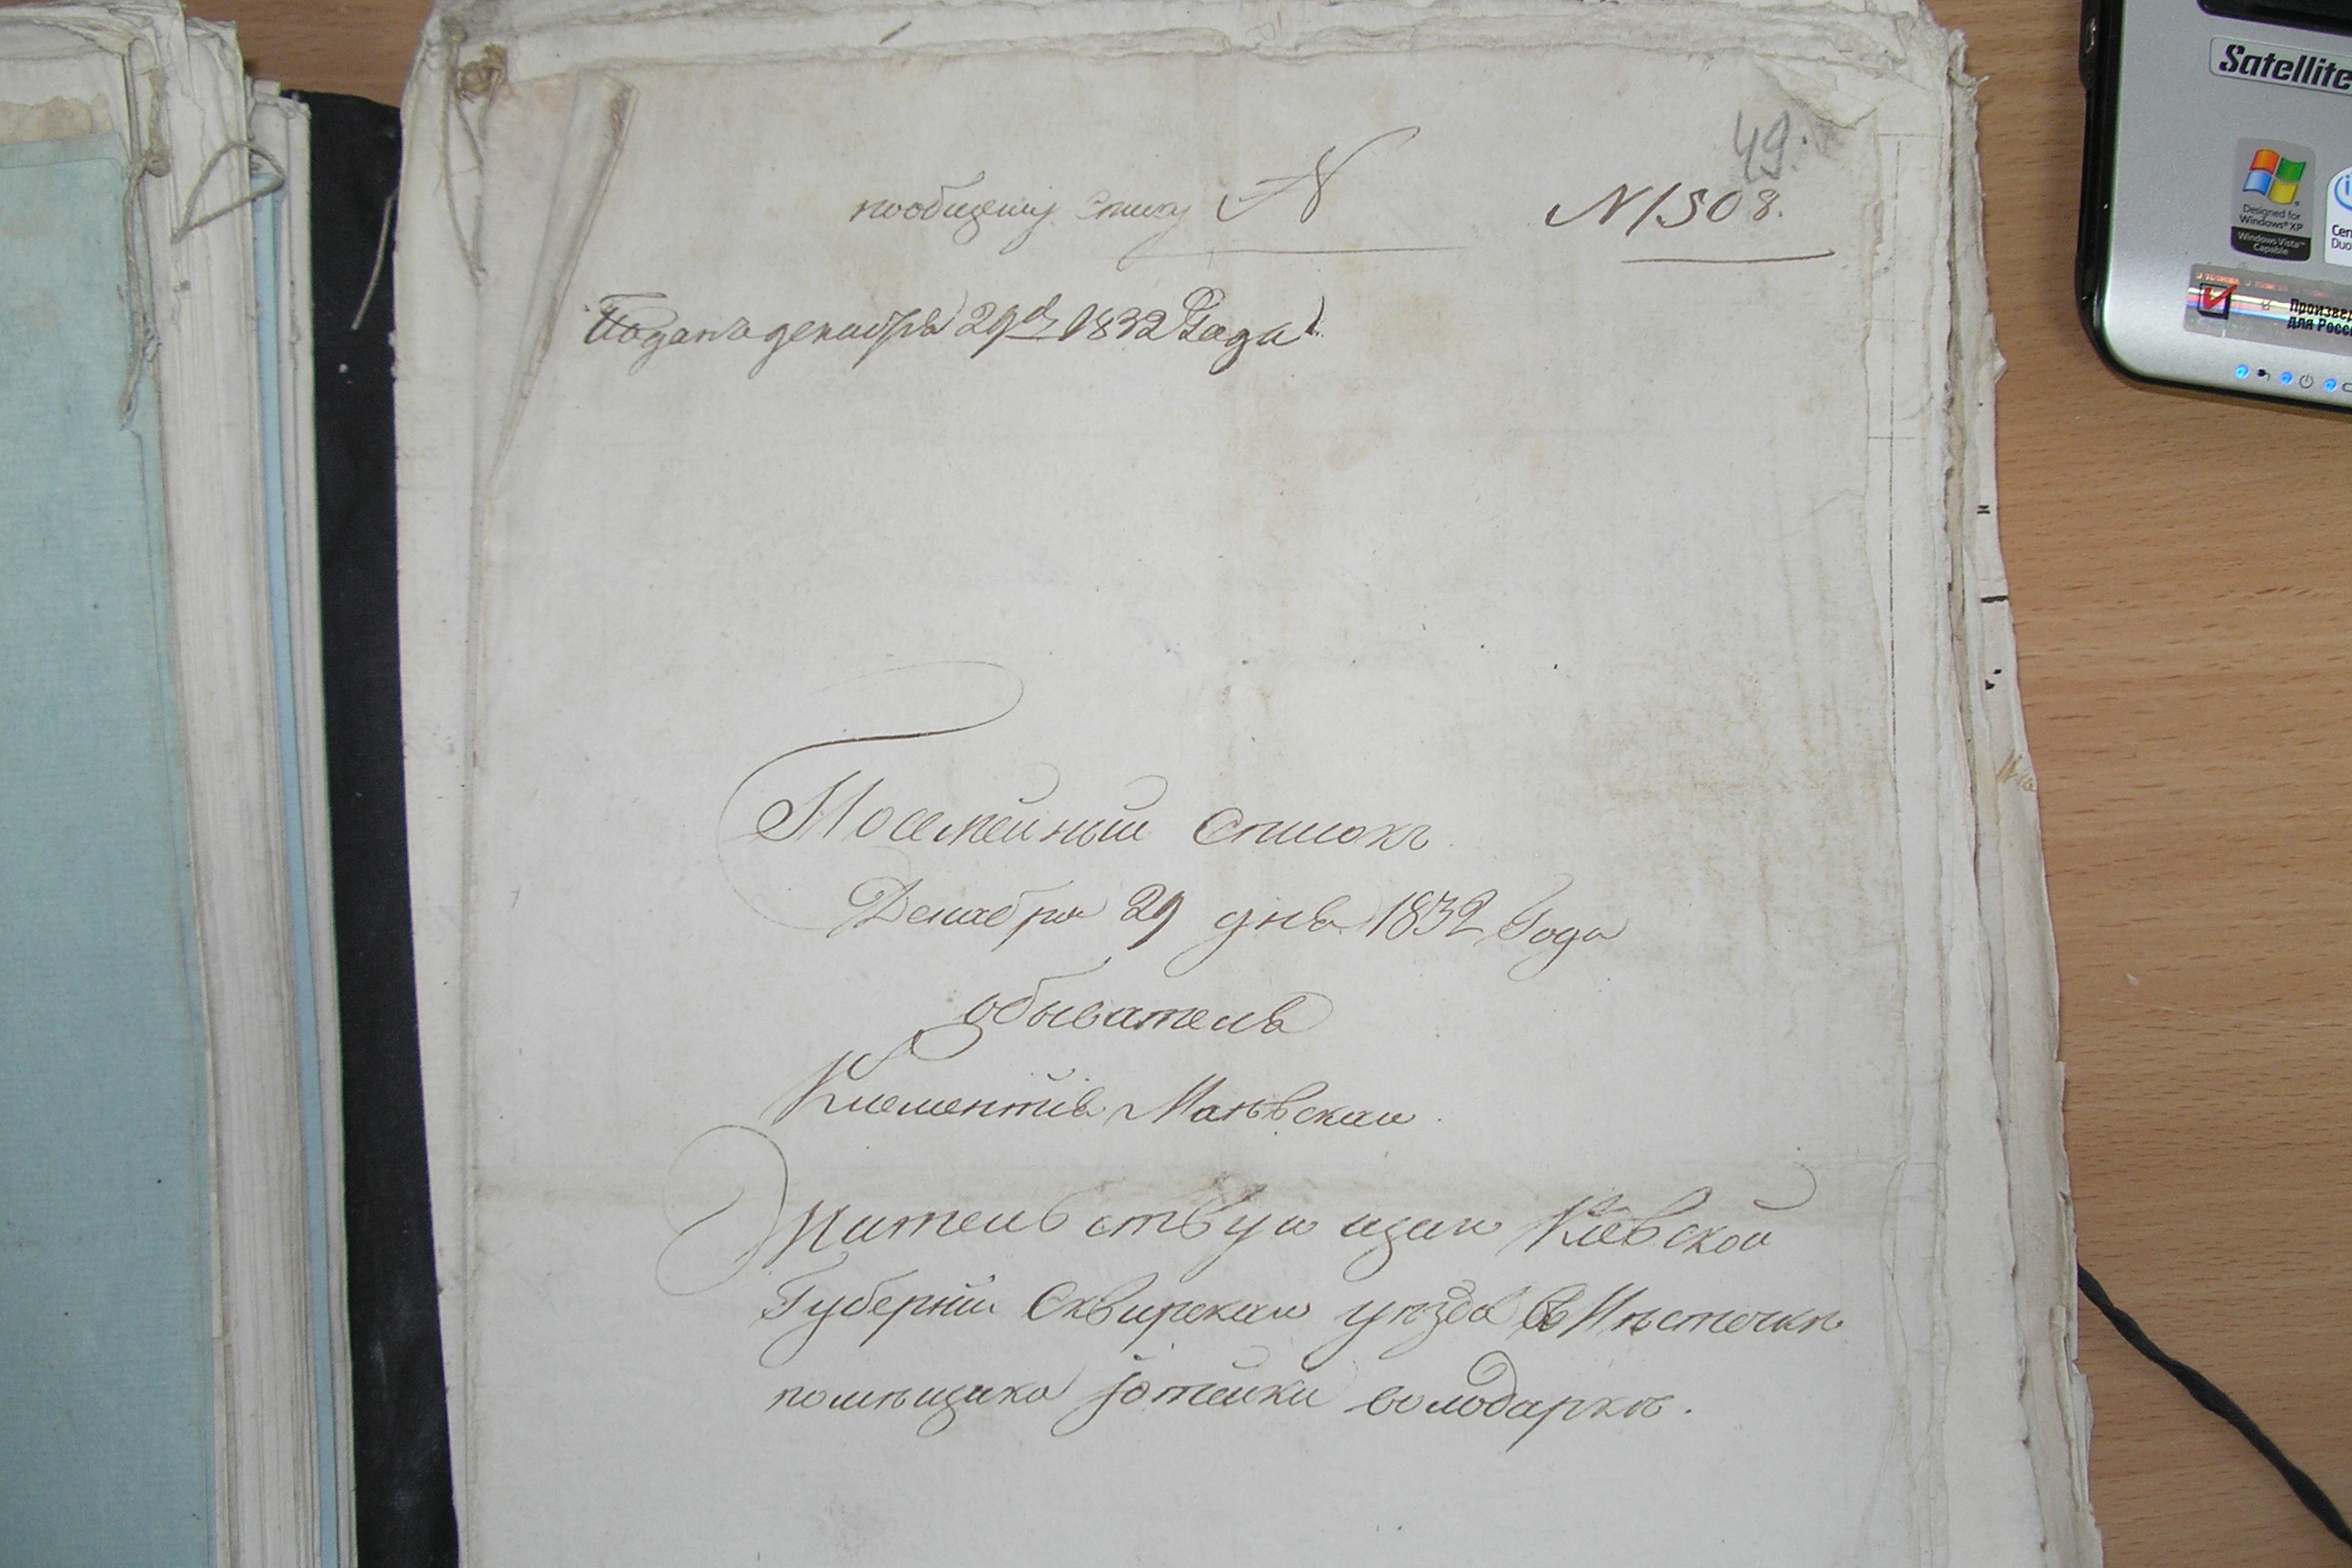 49.
пообщему списку №
N 1508.
Поданъ декабря 29го 1832 Года
Посемейный списокъ
Декабря 29 дня 1832 Года
обыватель
Климентія Маньвскаи
Жительствующаи Кіевской
Губерніи Сквирскаи уѣзда въ Мѣстечкѣ
помѣщика володаркѣ.
Satellite
Designed for
Windows® XP
Windows Vista™
Capable
Duo
Произвед
для Росс